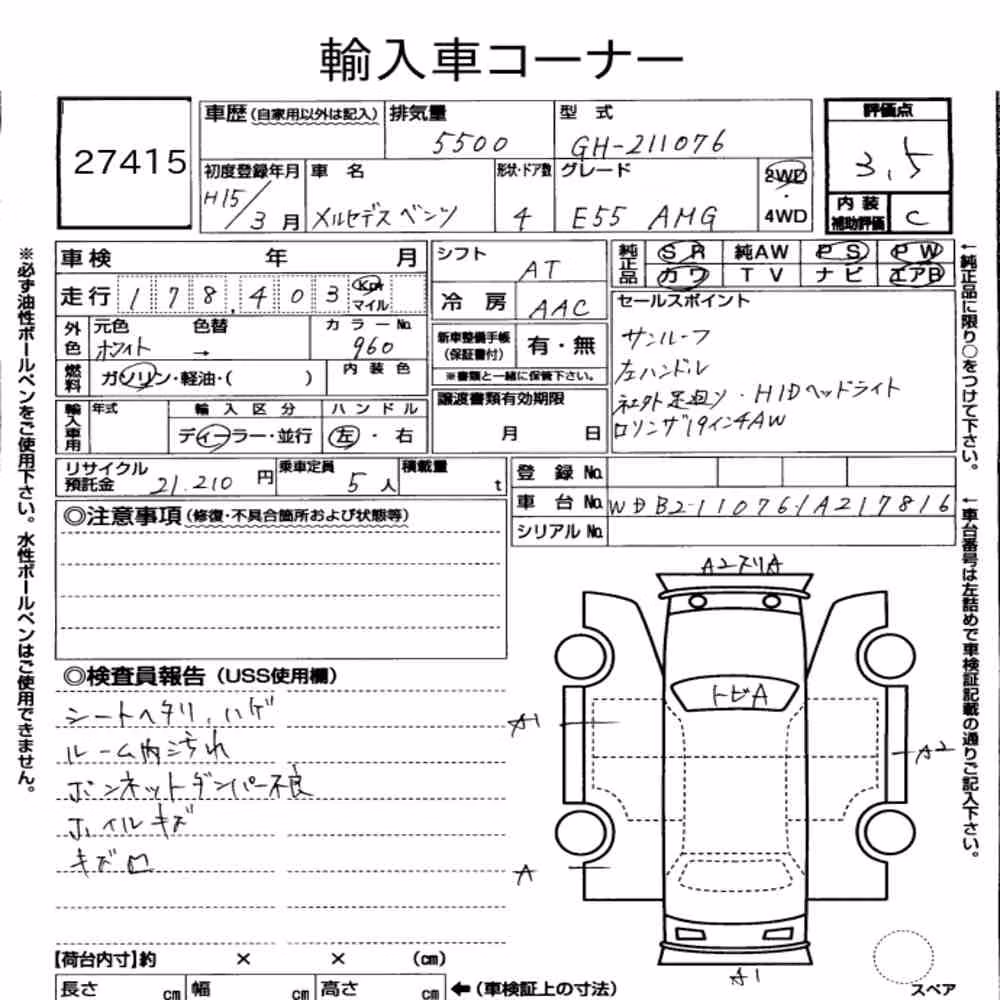 輸入車コーナー
27415
車歴(自家用以外は記入) 排気量 5500 型式 GH-211076
初度登録年月 H15/3月 車名 メルセデスベンツ 形状・ドア数 4 グレード E55 AMG 2WD・4WD
評価点 3.5
内装補助評価 C
車検 年 月
走行 178,403 Km マイル
外色 元色 ホワイト 色替 → カラーNo. 960
燃料 ガソリン・軽油・( ) 内装色
輸入車用 年式 輸入区分 ディーラー・並行 ハンドル 左・右
シフト AT
冷房 AAC
新車整備手帳(保証書付) 有・無
※書類と一緒に保管下さい。
譲渡書類有効期限 月 日
純正品 SR 純AW PS PW
カワ TV ナビ エアB
セールスポイント
サンルーフ
左ハンドル
社外足廻り・HIDヘッドライト
ロリンザ19インチAW
リサイクル預託金 21.210円 乗車定員 5人 積載量 t
登録No.
車台No. WDB2110761A217816
シリアルNo.
◎注意事項(修復・不具合箇所および状態等)
◎検査員報告(USS使用欄)
シートヘタリ、ハゲ
ルーム内汚れ
ボンネットダンパー不良
ホイルキズ
キズ凹
A2スリA
トビA
A1
A2
A
A1
スペア
【荷台内寸】約 × × (cm)
長さ cm 幅 cm 高さ cm ←(車検証上の寸法)
※必ず油性ボールペンをご使用下さい。水性ボールペンはご使用できません。
←純正品に限り○をつけて下さい。
←車台番号は左詰めで車検証記載の通りご記入下さい。